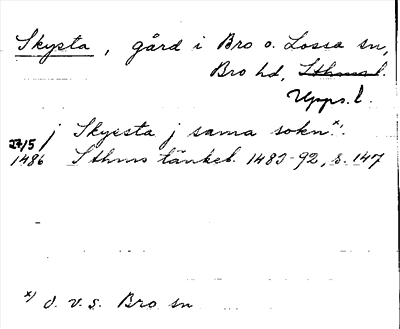 Skysta, gård i Bro o. Lossa sn,
Bro hd, Sthms l.
Upps. l.
j Skyesta j sama sokn x).
27/5
1486 Sthms tänkeb. 1483-92, s. 147
x) d. v. s. Bro sn